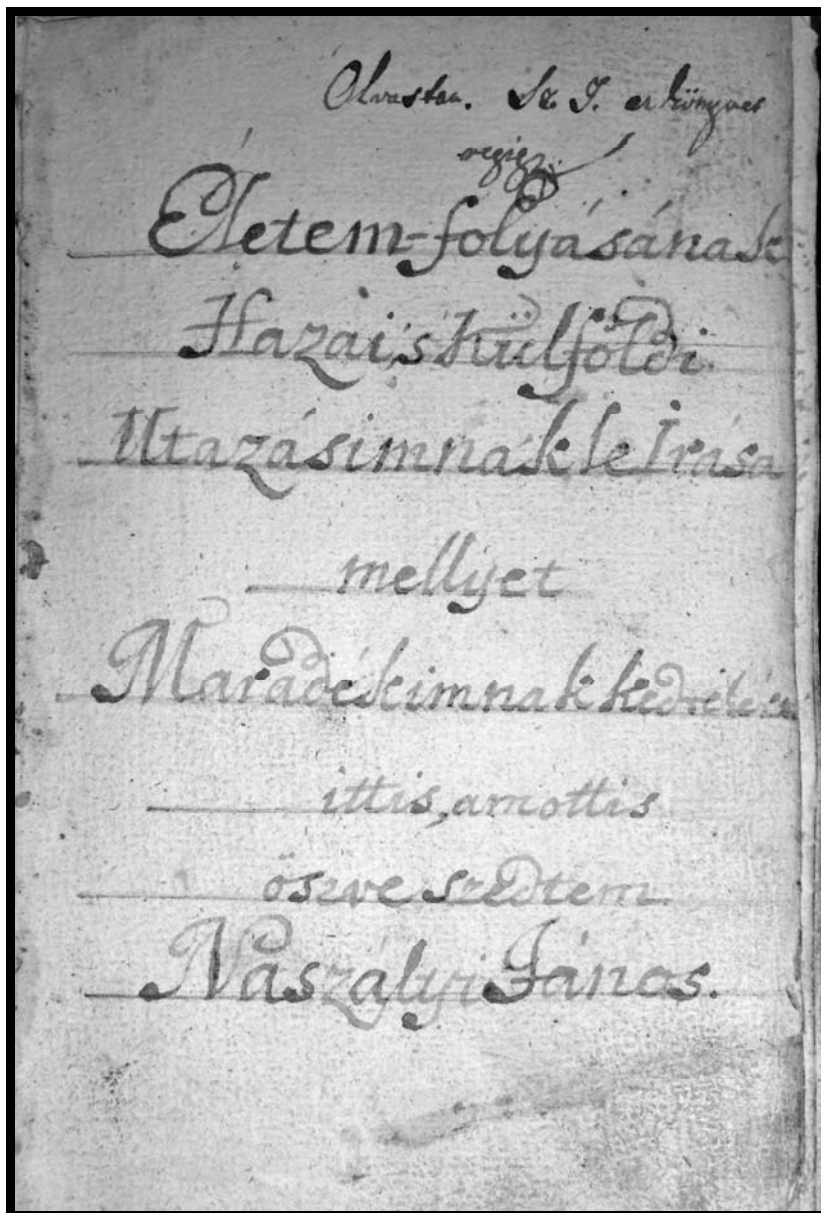 Olvastam. Sz. J. ez könyvet
végig
Életem-folyásának
Hazai, s külföldi
Utazásimnak le Írása
mellyet
Maradékimnak kedvekért
ittis, amottis
öszve szedtem.
Naszályi János.